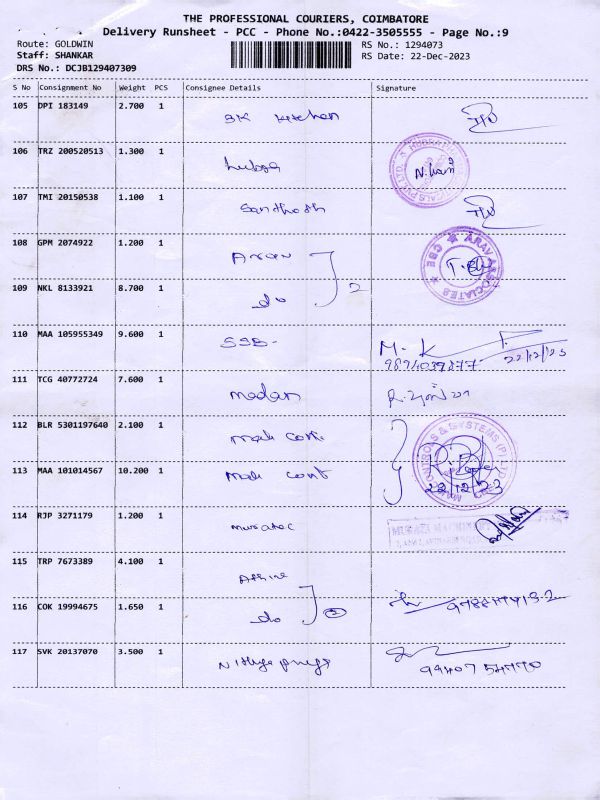 THE PROFESSIONAL COURIERS, COIMBATORE
Delivery Runsheet - PCC - Phone No.:0422-3505555 - Page No.:9
Route: GOLDWIN RS No.: 1294073
Staff: SHANKAR RS Date: 22-Dec-2023
DRS No.: DCJB129407309
S No Consignment No Weight PCS Consignee Details Signature
105 DPI 183149 2.700 1 SK Kitchen
106 TRZ 200520513 1.300 1 hubra
107 TMI 20150538 1.100 1 Santhosh
108 GPM 2074922 1.200 1 Arav
ARAV ASSOCIATES CBE
109 NKL 8133921 8.700 1 do 2
110 MAA 105955349 9.600 1 SSB- M. K
9894039877 22/12/23
111 TCG 40772724 7.600 1 madan
112 BLR 5301197640 2.100 1 mak cont
CONTROLS & SYSTEMS (P) LTD
113 MAA 101014567 10.200 1 mak cont 22/12/23
114 RJP 3271179 1.200 1 muratec
MURATA MACHINERY
115 TRP 7673389 4.100 1
116 COK 19994675 1.650 1 do 2
117 SVK 20137070 3.500 1 Nithya